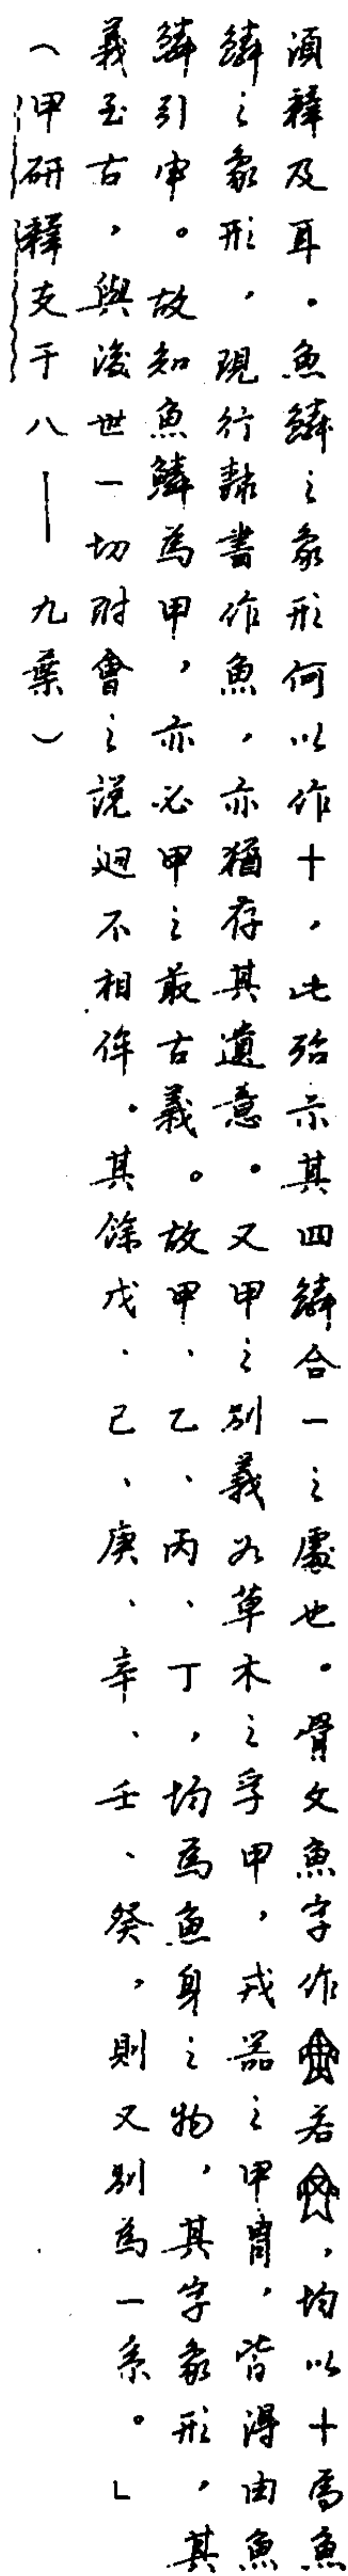 須釋及耳。魚鱗之象形何以作十，此殆示其四鱗合一之處也。骨文魚字作若，均以十為魚
鱗之象形，現行隸書作魚，亦猶存其遺意。又甲之別義如草木之孚甲，戎器之甲冑，皆得由魚
鱗引申。故知魚鱗為甲，亦必甲之最古義。故甲、乙、丙、丁，均為魚身之物，其字象形，其
義至古，與後世一切附會之說迥不相侔。其餘戊、己、庚、辛、壬、癸，則又別為一系。」
（甲研釋支干八——九葉）